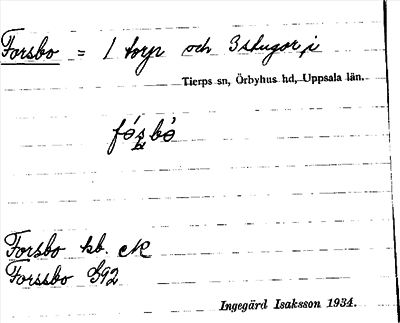 Forsbo = 1 torp och 3 stugor, i
Tierps sn, Örbyhus hd, Uppsala län.
Forsbo kb. ek
Forssbo G92
Ingegärd Isaksson 1934.